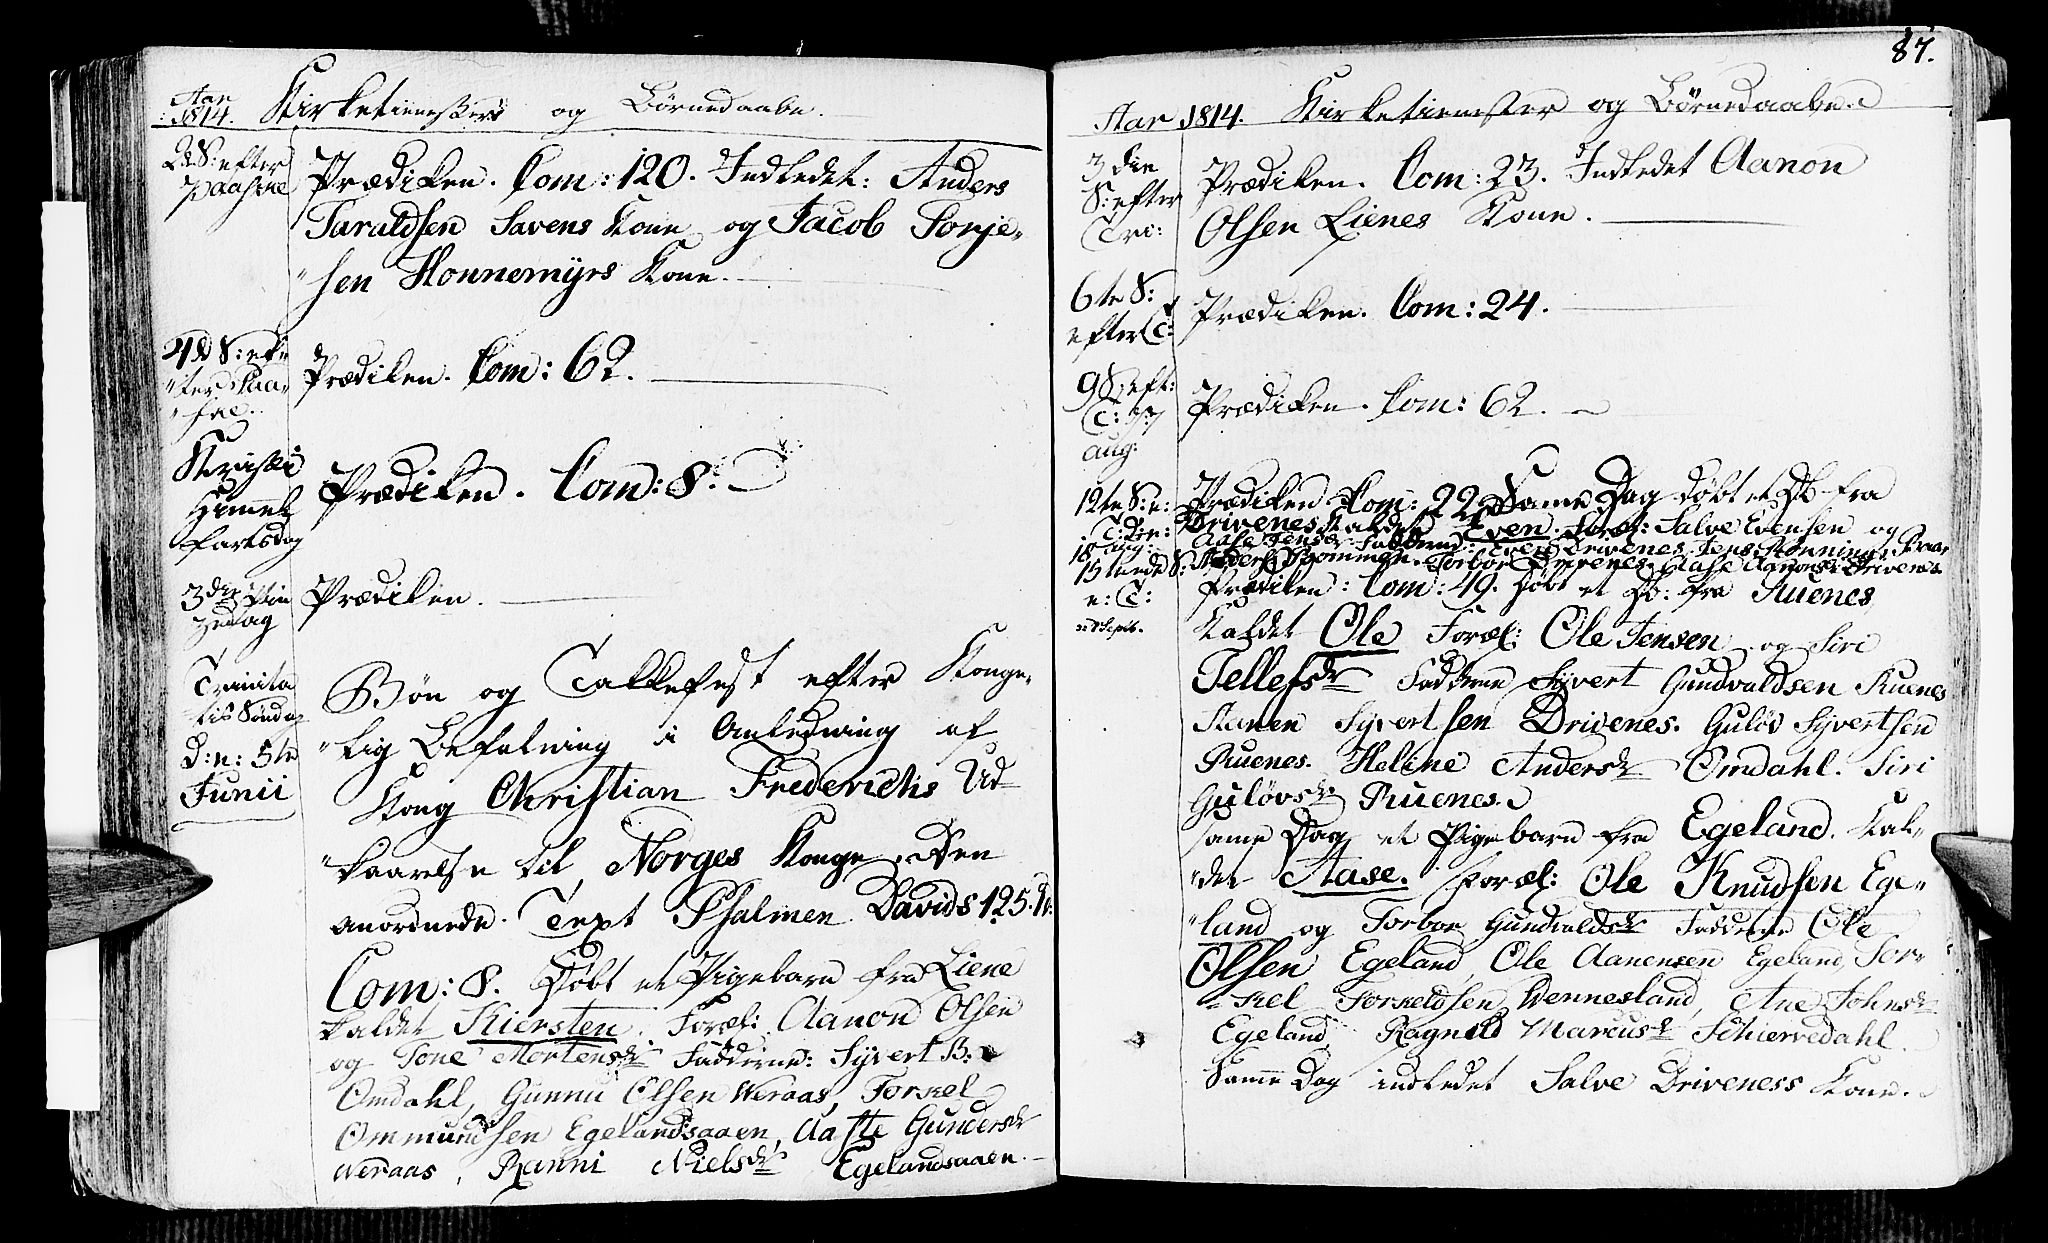 Aar
1814. Kirketienester og Børnedaabe.
2 S: efter
Paaske
Prædiken. Com: 120. Indledet: Anders
Taraldsen Savens Kone og Jacob Tonje-
sen Honnemyrs Kone.
4d S: ef-
ter Paa-
ske.
Prædiken. Com: 62.
Kristi
Himmel
fartsdag
Prædiken. Com: 8.
3die Pin
zedag
Prædiken.
Trinita
tis Søndag
D: n: 5te
Junii
Bøn og Takkefest efter Konge-
lig Befalning i Anledning af
Kong Christian Frederichs Ud-
kaarelse til Norges Konge. Den
anordnede Text Psalmen Davids 125.
Com: 8. Døbt et Pigebarn fra Liene
kaldet Kiersten. Foræl: Aanon Olsen
og Tone Mortensdr Fadderne: Syvert B:
Omdahl, Gunnu Olsen Weraas, Torkel
Ommundsen Egelandsaaen, Aaste Gundersdr
Weraas, Ranni Nielsdr Egelandsaaen.
87.
Aar 1814. Kirketienester og Børnedaabe.
3die
S: efter
Tri:
Prædiken. Com: 23. Indledet Aanon
Olsen Lienes Kone.
6te S:
efter T:
Prædiken. Com: 24.
9 S. eft:
T: d: 7
aug:
Prædiken. Com: 62.
12te S: e:
T: Den:
18 aug:
Prædiken Com: 22. Same Dag døbt et Db fra
Drivenes kaldet Even. Foræl: Salve Evensen og
Aase Jensdr Fadderne: Even Drivenes, Jens
Anders Torbor Drivenes. Aase Aanonsdr Drivenes
15tende S:
e: T:
Septb.
Prædiken: Com: 49. Døbt et Db: fra Ruenes
kaldet Ole Foræl: Ole Jensen og Siri
Tellefsdr Fadderne Syvert Gundvaldsen Ruenes
Aanen Syvertsen Drivenes. Guløv Syvertsen
Ruenes. Heline Andersdr Omdahl. Siri
Guløvsdr Ruenes.
same Dag et Pigebarn fra Egeland. Kal-
det Aase. Foræl: Ole Knudsen Ege-
land og Torbor Gundvaldsdr Fadderne Ole
Olsen Egeland, Ole Aanensen Egeland, Tor-
kel Torkeldsen Wennesland, Ane Johnsdr
Egeland, Ragnild Marcusdr Schiervedahl.
Samme Dag indledet Salve Driveness Kone.